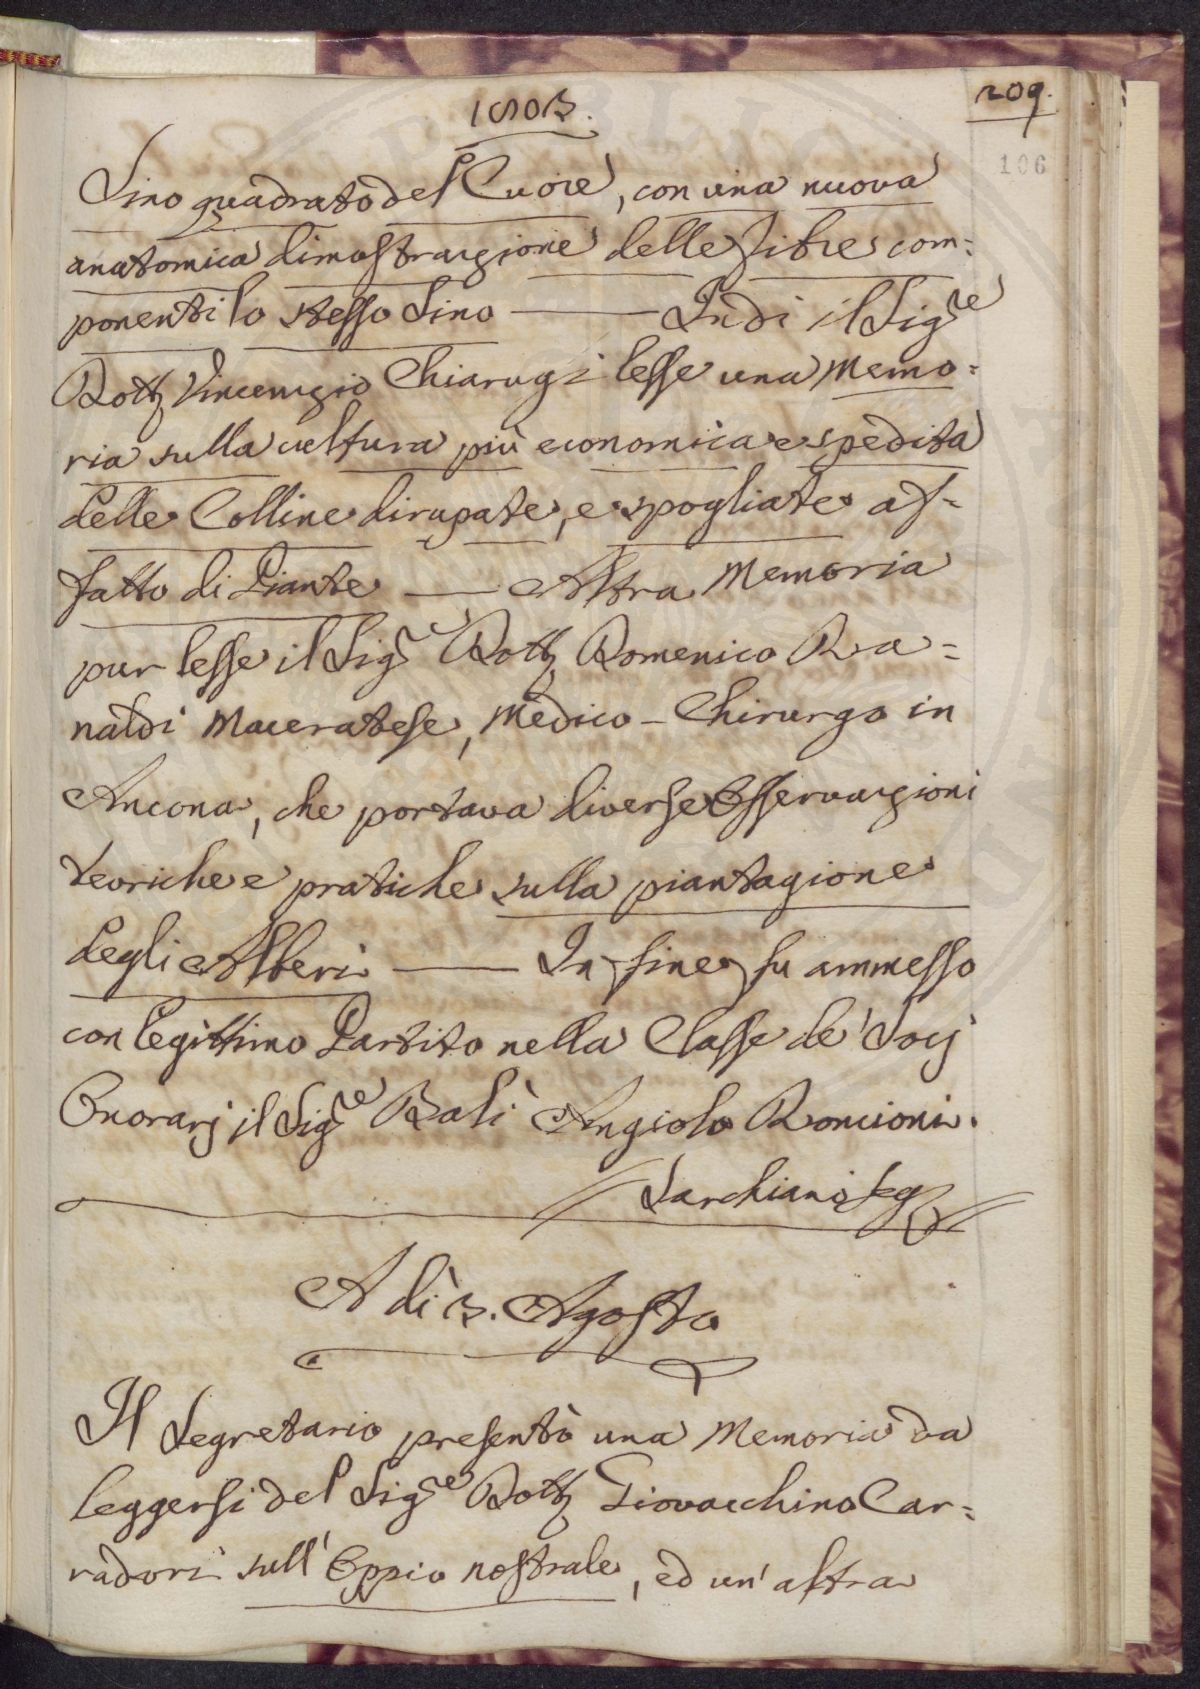 1803.
209.
106
Sino quadrato del Cuore, con una nuova
anatomica dimostrazione delle fibre com=
ponenti lo stesso Sino —— Indi il Sig.re
Dott. Vincenzio Chiarugi lesse una Memo=
ria sulla cultura più economica e spedita
delle Colline dirupate, e spogliate af=
fatto di Piante —— Altra Memoria
pur lesse il Sig.e Dott. Domenico Ra=
naldi Maceratese, Medico-Chirurgo in
Ancona, che portava diverse Osservazioni
teoriche e pratiche sulla piantagione
degli Alberi —— In fine fu ammesso
con legittimo Partito nella Classe de' Socj
Onorarj il Sig.re Balì Angiolo Roncioni.
Sarchiani Seg.
A dì 3. Agosto
Il Segretario presentò una Memoria da
leggersi del Sig.re Dott. Giovacchino Car=
radori sull'Oppio nostrale, ed un'altra